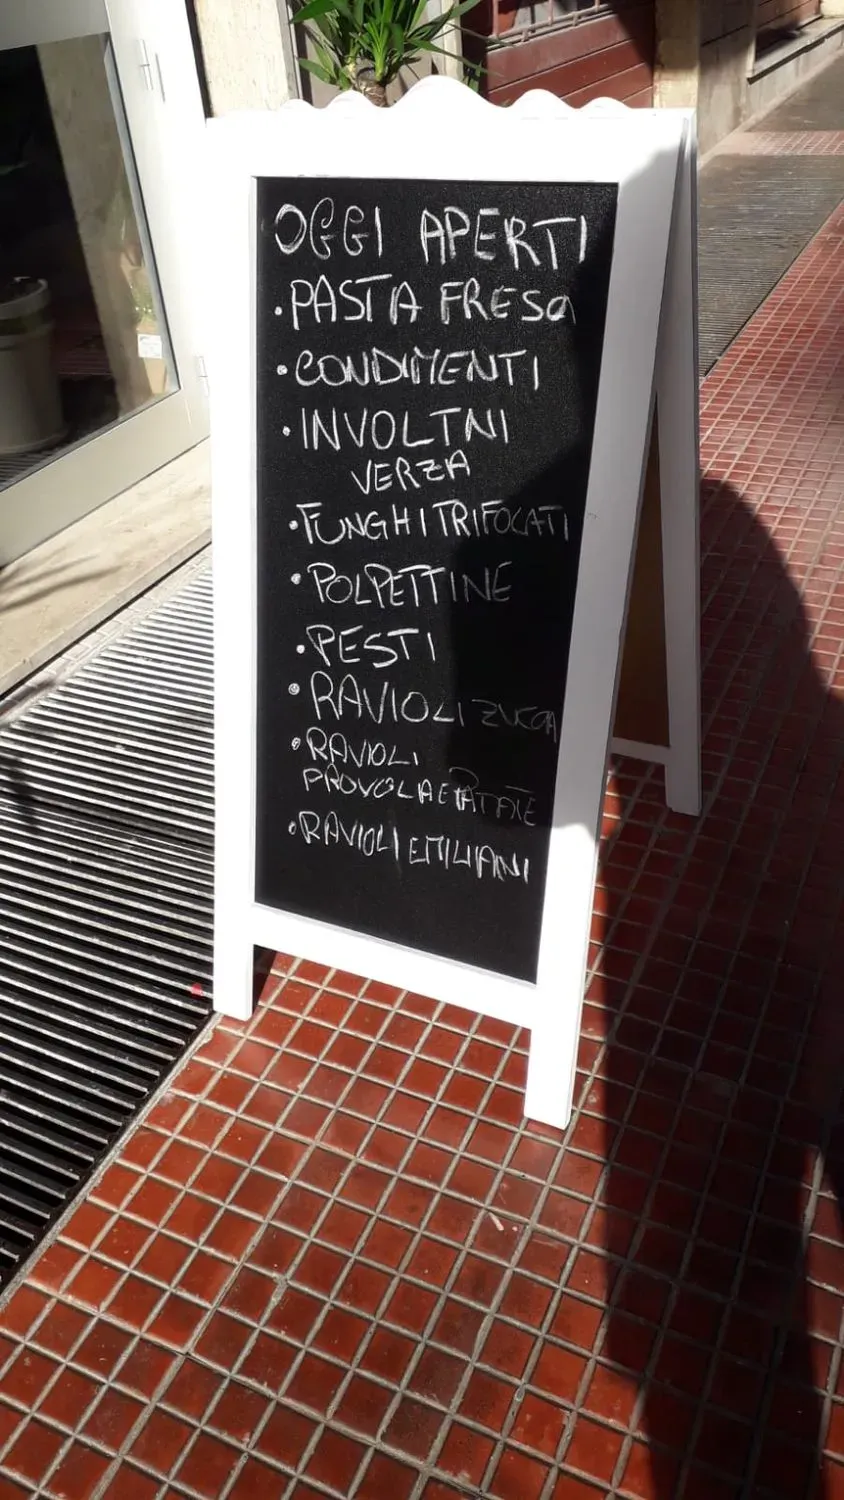 OGGI APERTI
• PASTA FRESCA
• CONDIMENTI
• INVOLTNI
VERZA
• FUNGHI TRIFOLATI
• POLPETTINE
• PESTI
• RAVIOLI ZUCCA
• RAVIOLI
PROVOLA E PATATE
• RAVIOLI EMILIANI